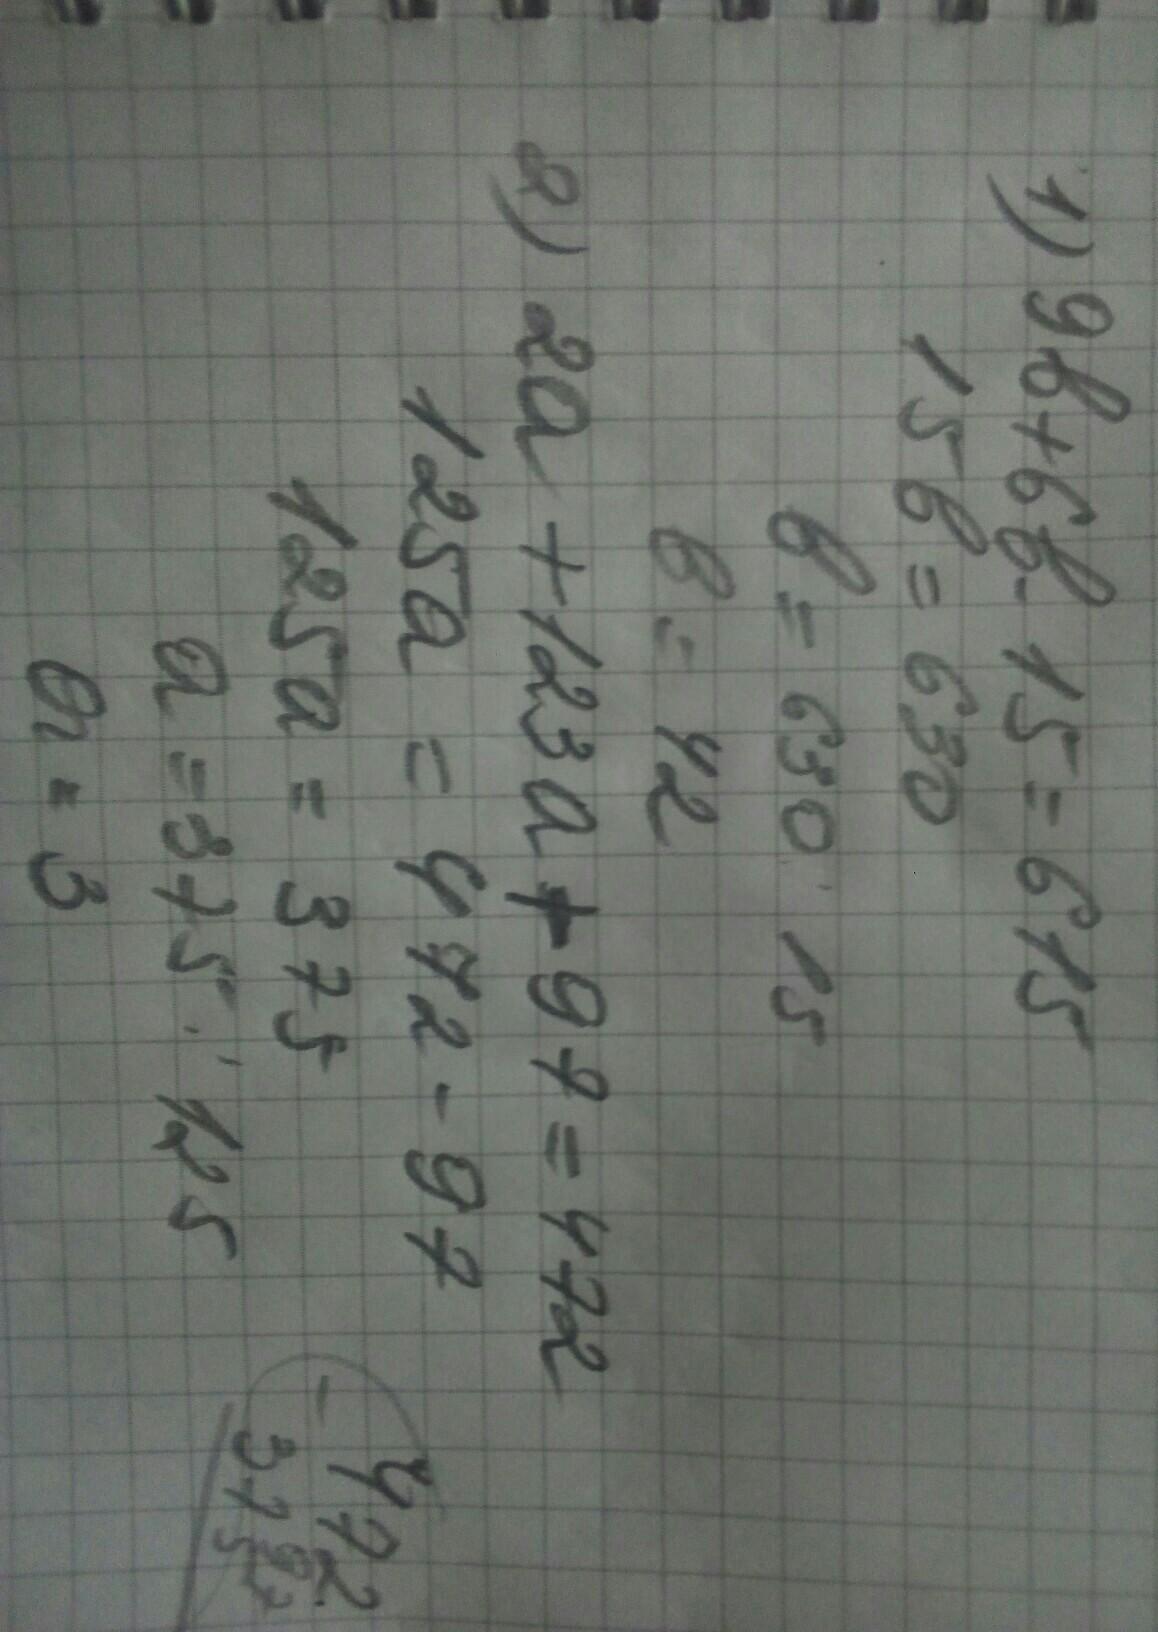 1) 9b+6b-15=615
15b=630
b=630:15
b=42
2) 2a+123a+97=472
125a=472-97
125a=375
a=375:125
a=3
- 472
97
375